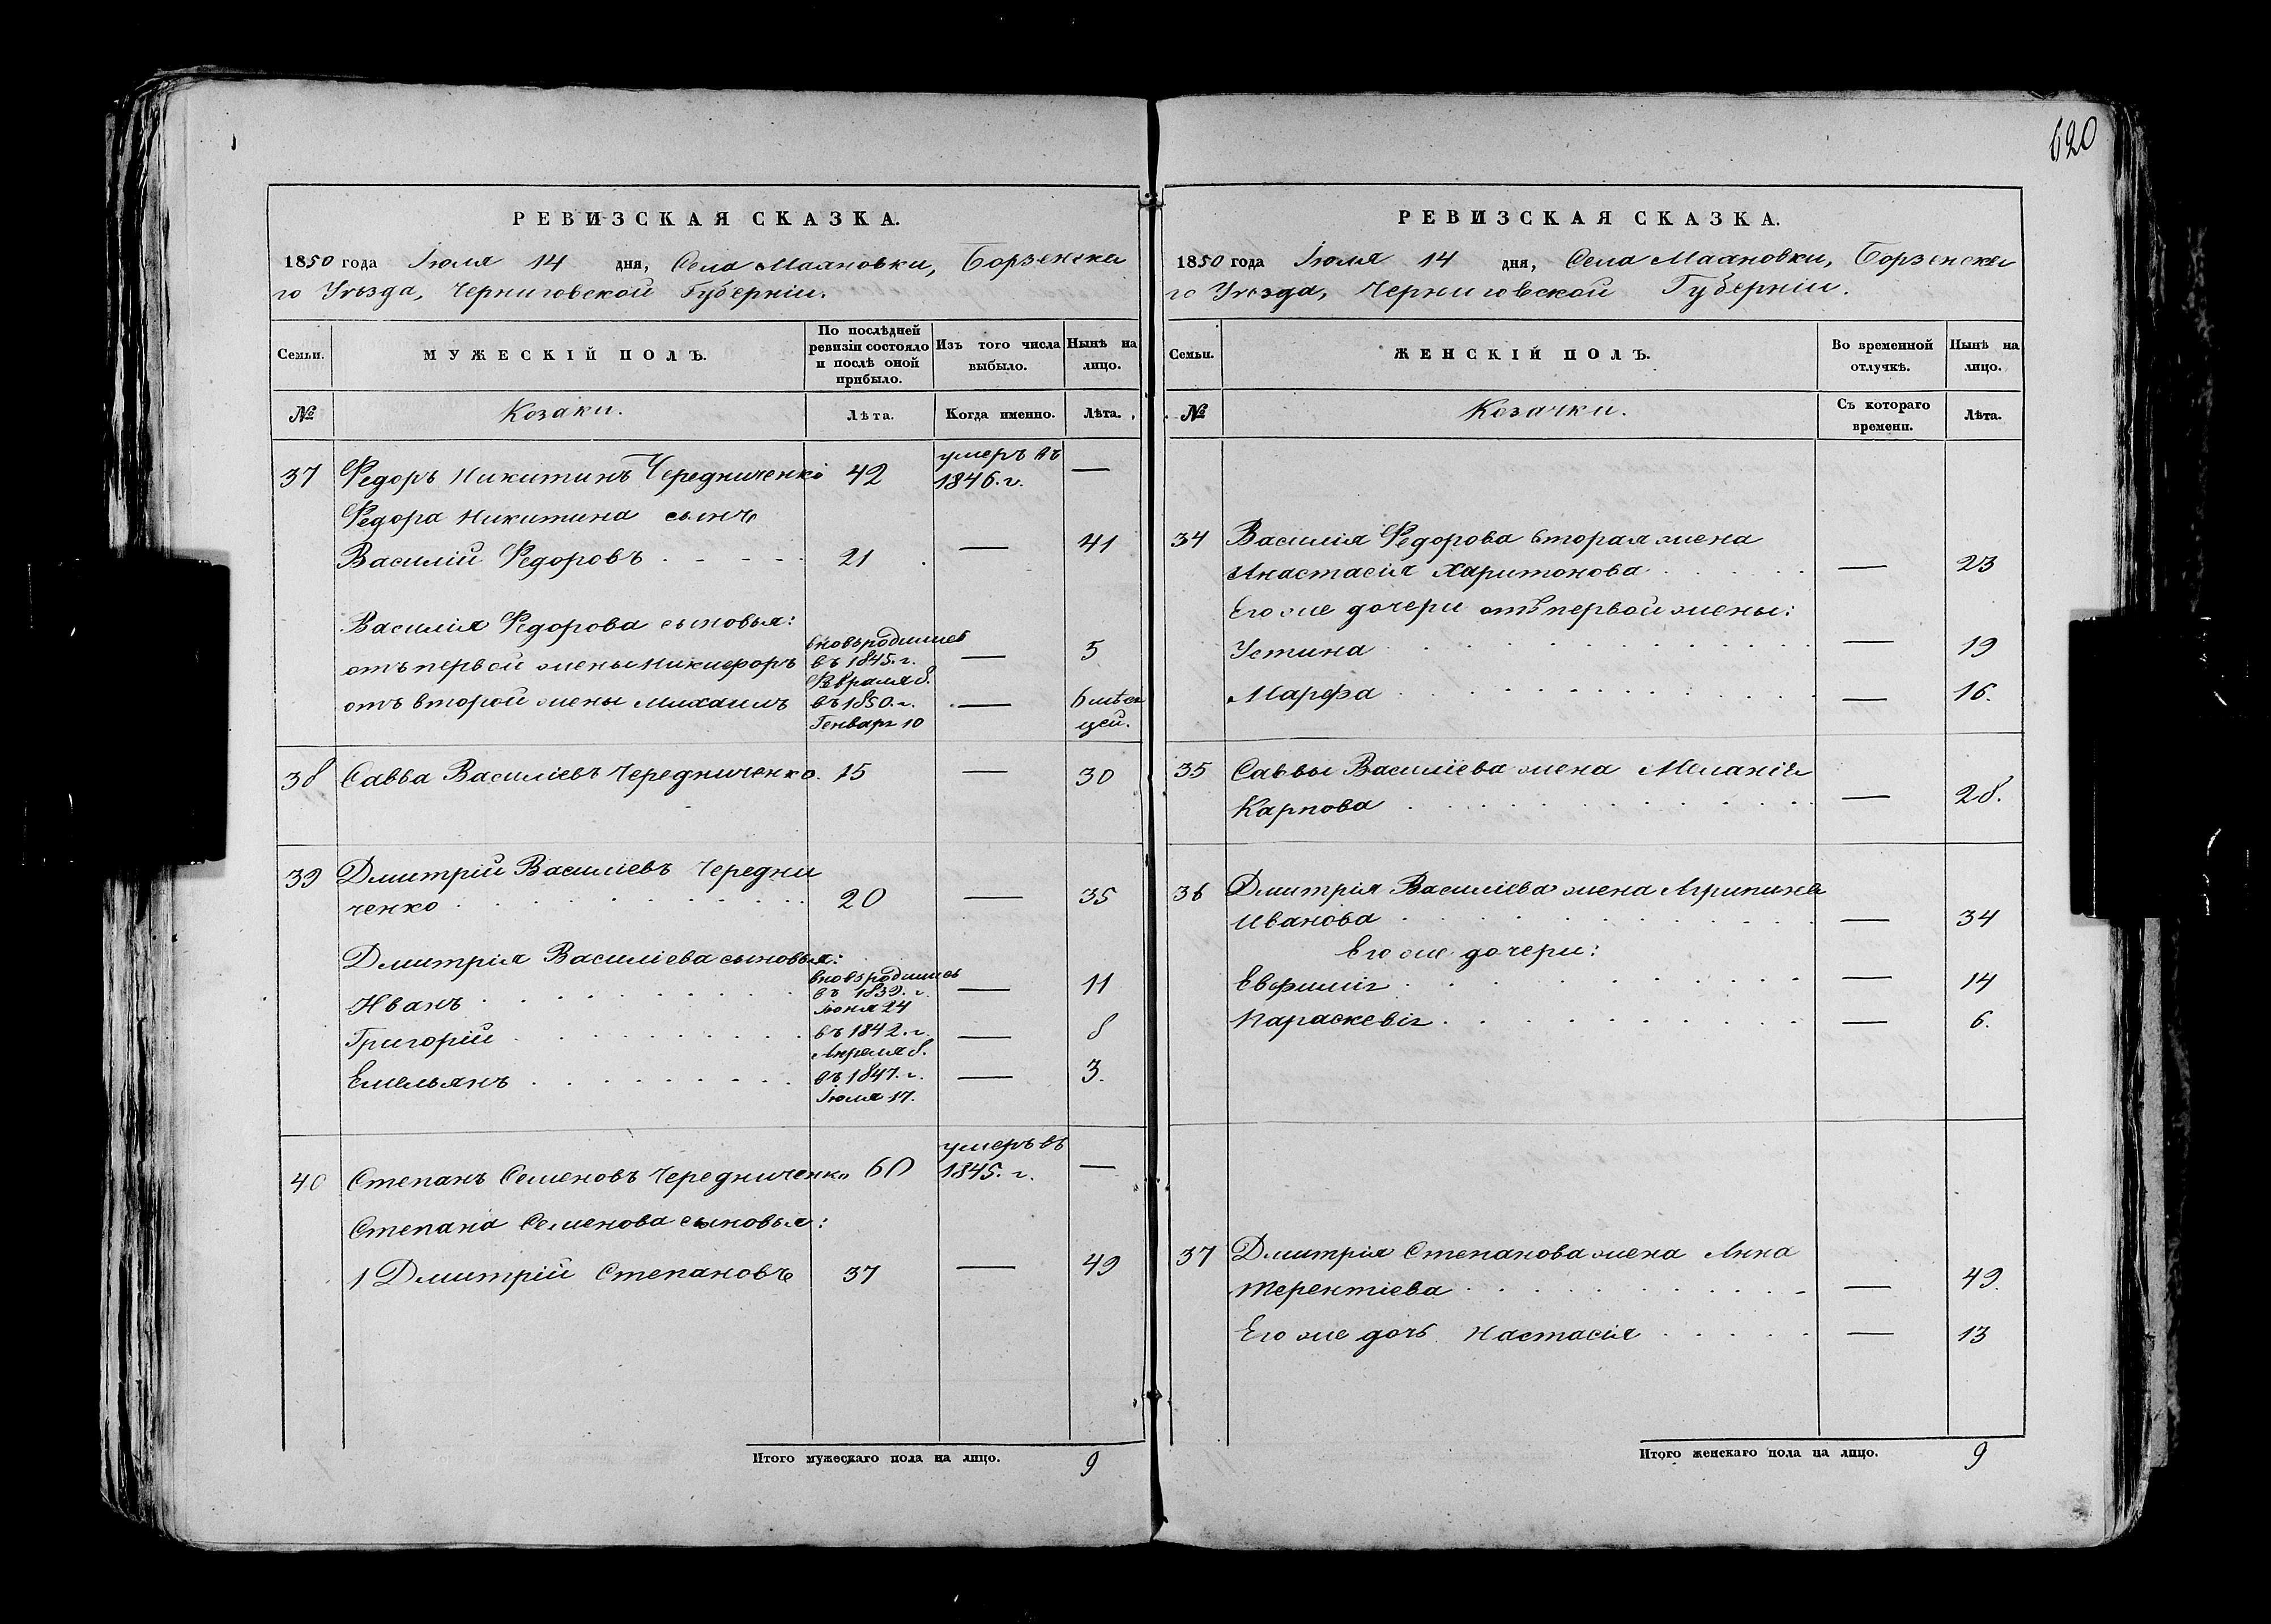 620
РЕВИЗСКАЯ СКАЗКА.
1850 года Іюля 14 дня, Села Малановки, Борзенска
го Уѣзда, Черниговской Губерніи.
Семьи.
МУЖЕСКІЙ ПОЛЪ.
По послѣдней
ревизіи состояло
и послѣ оной
прибыло.
Изъ того числа
выбыло.
Нынѣ на
лицо.
№ Козаки. Лѣта. Когда именно. Лѣта.
умеръ въ
37 Федоръ Никитинъ Чередниченко 42 1846. г. —
Федора Никитина сынъ
Василій Федоровъ 21 — 41
Василія Федорова сыновья:
вновьродились
отъ первой жены Никифоръ въ 1845. г. — 5
Февраля 8.
отъ второй жены Михаилъ въ 1850. г. — 6 мѣся
Генваря 10 цей.
38 Савва Василіевъ Чередниченко. 15 — 30
39 Дмитрій Василіевъ Чередни
ченко 20 — 35
Дмитрія Василіева сыновья:
вновьродились
Иванъ въ 1839. г. — 11
Іюня 24
Григорій въ 1842. г. — 8
Апреля 8.
Емельянъ въ 1847. г. — 3.
Іюля 17.
умеръ въ
40 Степанъ Семеновъ Чередниченко 60 1845. г. —
Степана Семенова сыновья:
1 Дмитрій Степановъ 37 — 49
Итого мужескаго пола на лицо. 9
РЕВИЗСКАЯ СКАЗКА.
1850 года Іюля 14 дня, Села Малановки, Борзенска
го Уѣзда, Черниговской Губерніи.
Семьи.
ЖЕНСКІЙ ПОЛЪ.
Во временной
отлучкѣ.
Нынѣ на
лицо.
№ Козачки. Съ котораго
времени. Лѣта.
34 Василія Федорова вторая жена
Анастасія Харитонова — 23
Его же дочери отъ первой жены:
Устина — 19
Марфа — 16.
35 Саввы Василіева жена Меланія
Карпова — 28.
36 Дмитрія Василіева жена Агрипина
Иванова — 34
Его же дочери:
Евфимія — 14
Параскевія — 6.
37 Дмитрія Степанова жена Анна
Терентіева — 49.
Его же дочь Настасія — 13
Итого женскаго пола на лицо. 9